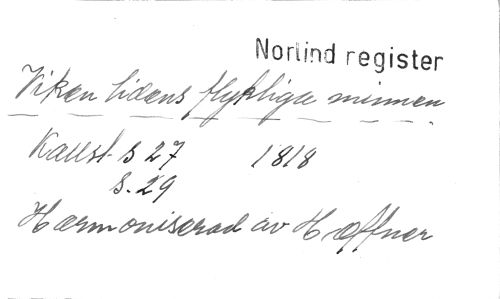 Norlind register
Vi ken tidens flyktiga minnen
Kallst. s 27 1818
s. 29
Harmoniserad av Hæffner